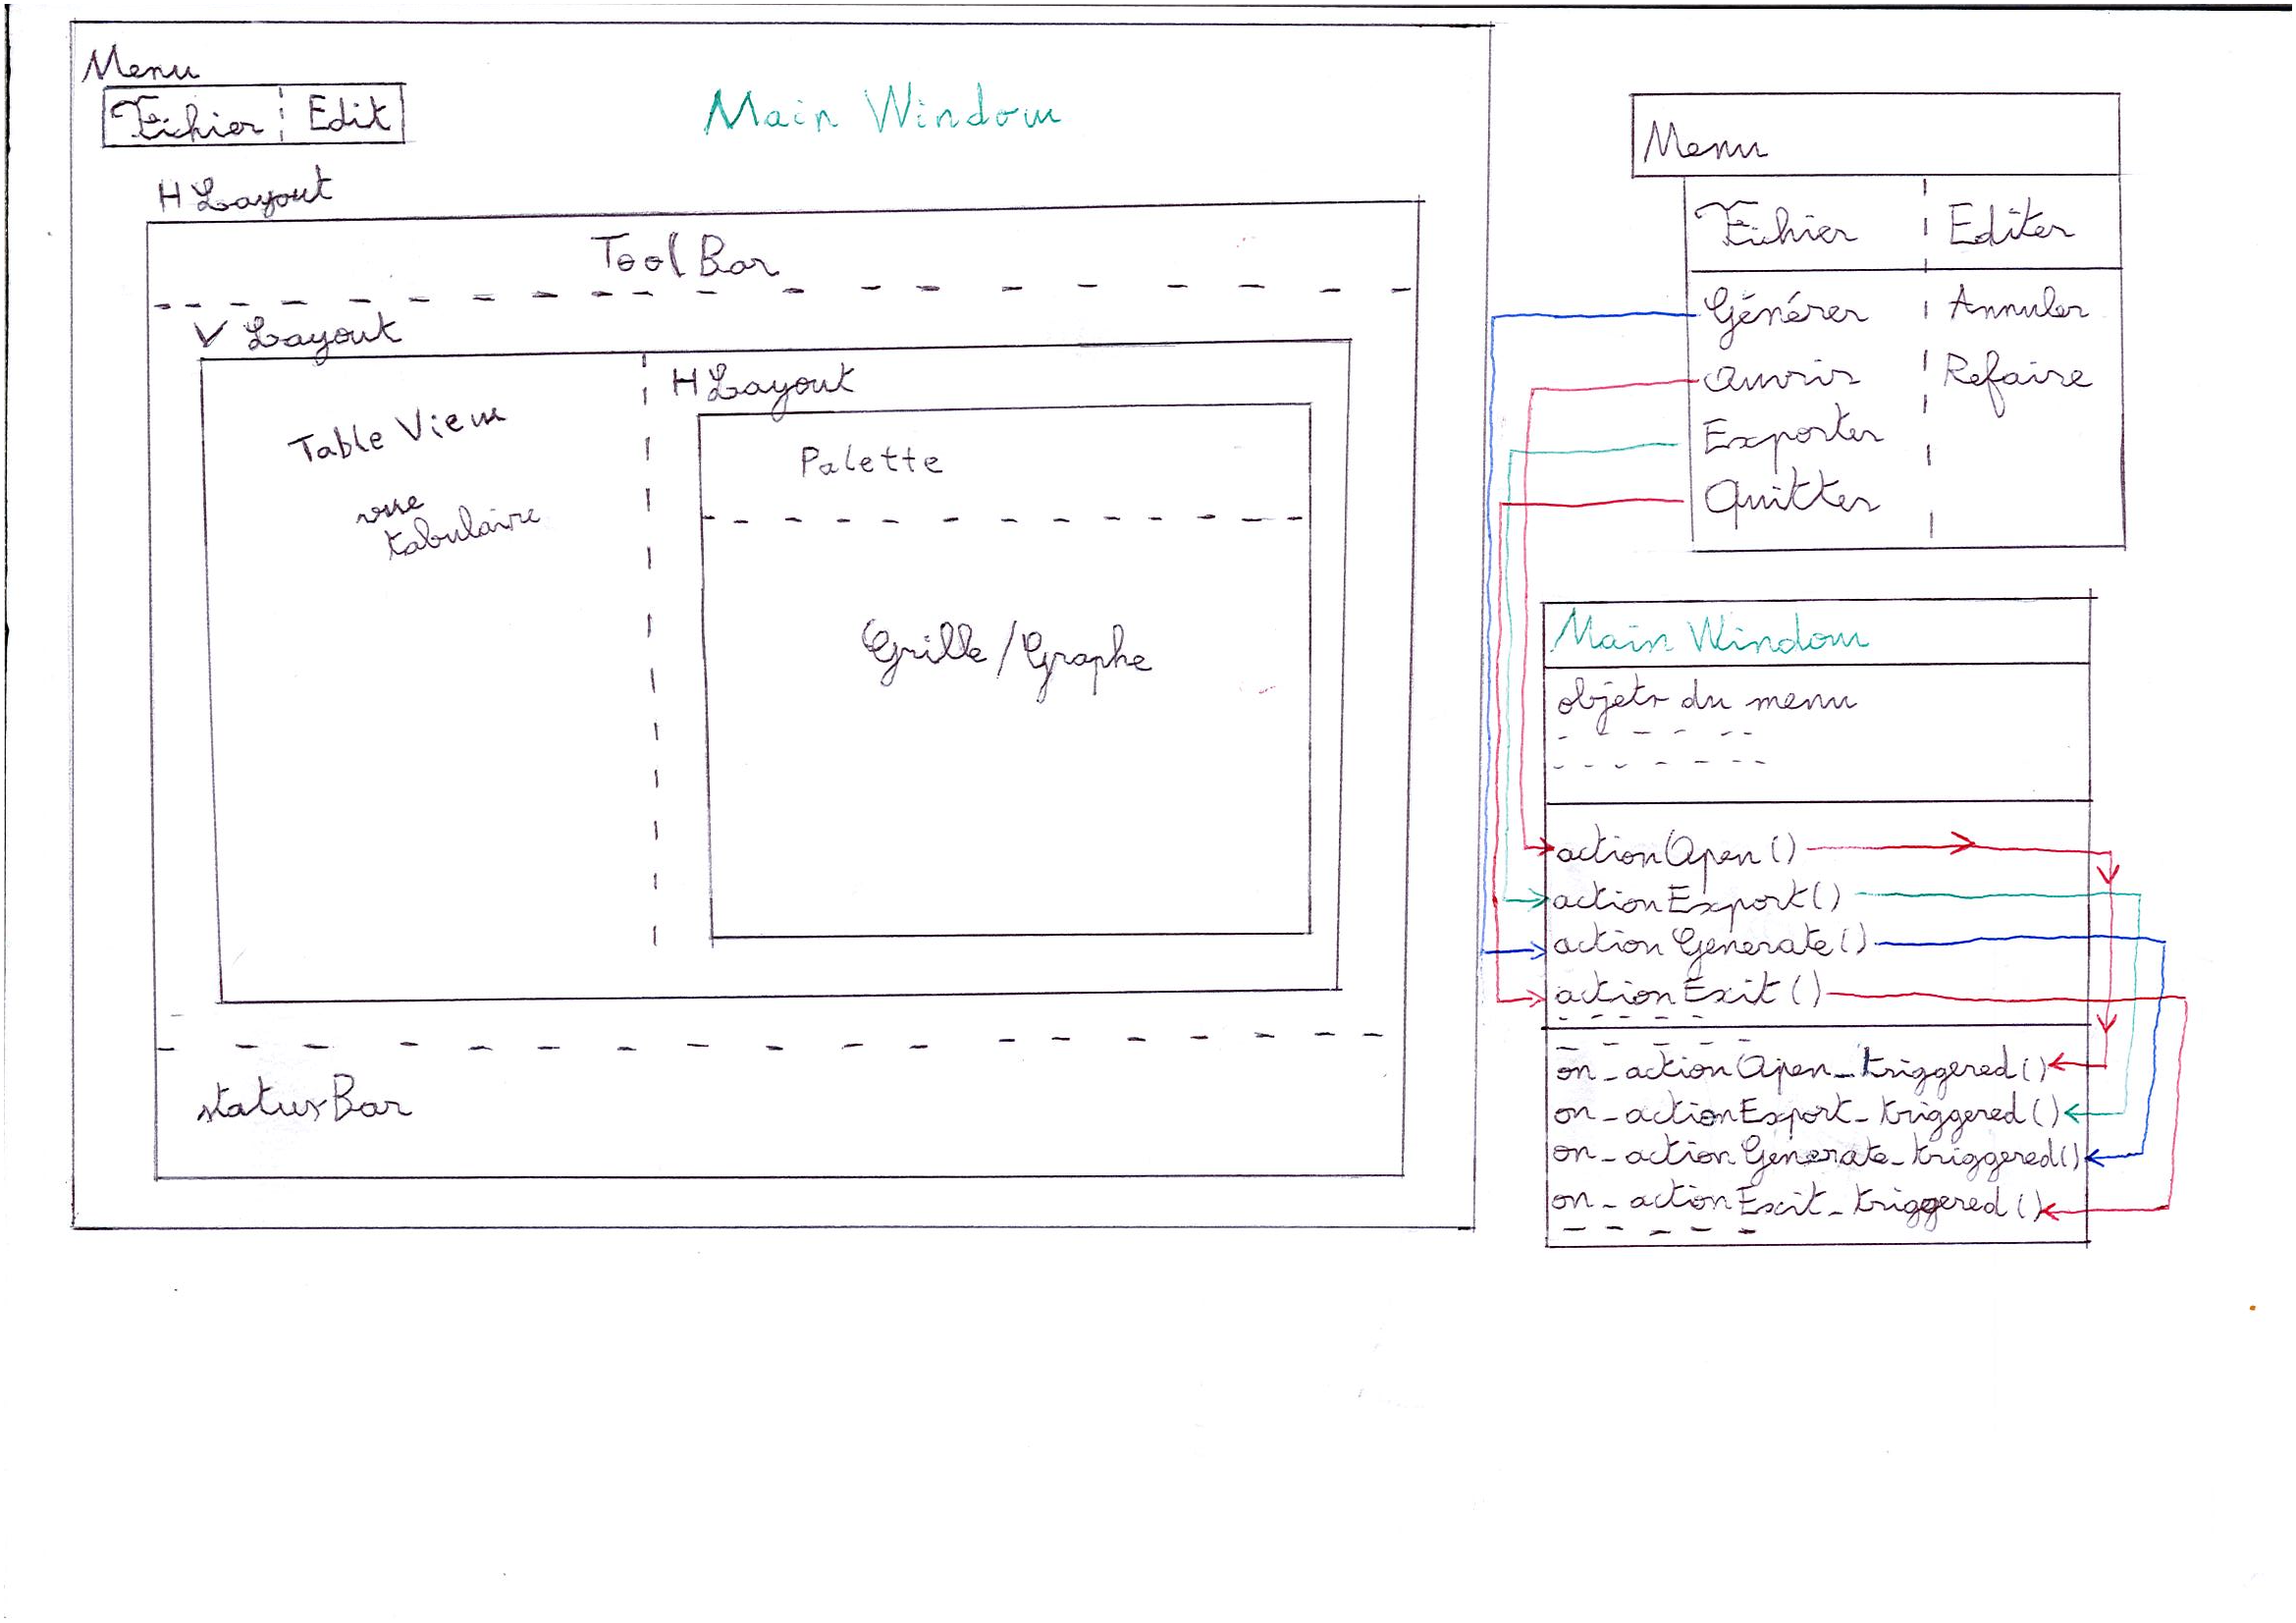 Menu
Fichier Edit
Main Window
H Layout
Tool Bar
V Layout
Table View
vue
tabulaire
H Layout
Palette
Grille/Graphe
statusBar
Menu
Fichier Editer
Générer Annuler
Ouvrir Refaire
Exporter
Quitter
Main Window
objets du menu
actionOpen()
actionExport()
actionGenerate()
actionExit()
on_actionOpen_triggered()
on_actionExport_triggered()
on_actionGenerate_triggered()
on_actionExit_triggered()